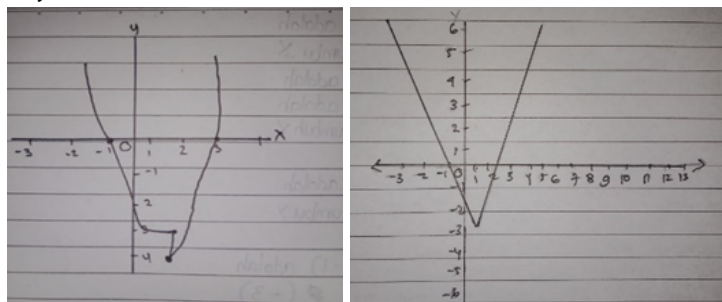 y
-3 -2 -1 0 1 2 3 X
-1
2
3
4
Y
6
5
4
3
2
1
-3 -2 -1 0 1 2 3 4 5 6 7 8 9 10 11 12 13
-2
-3
-4
-5
-6